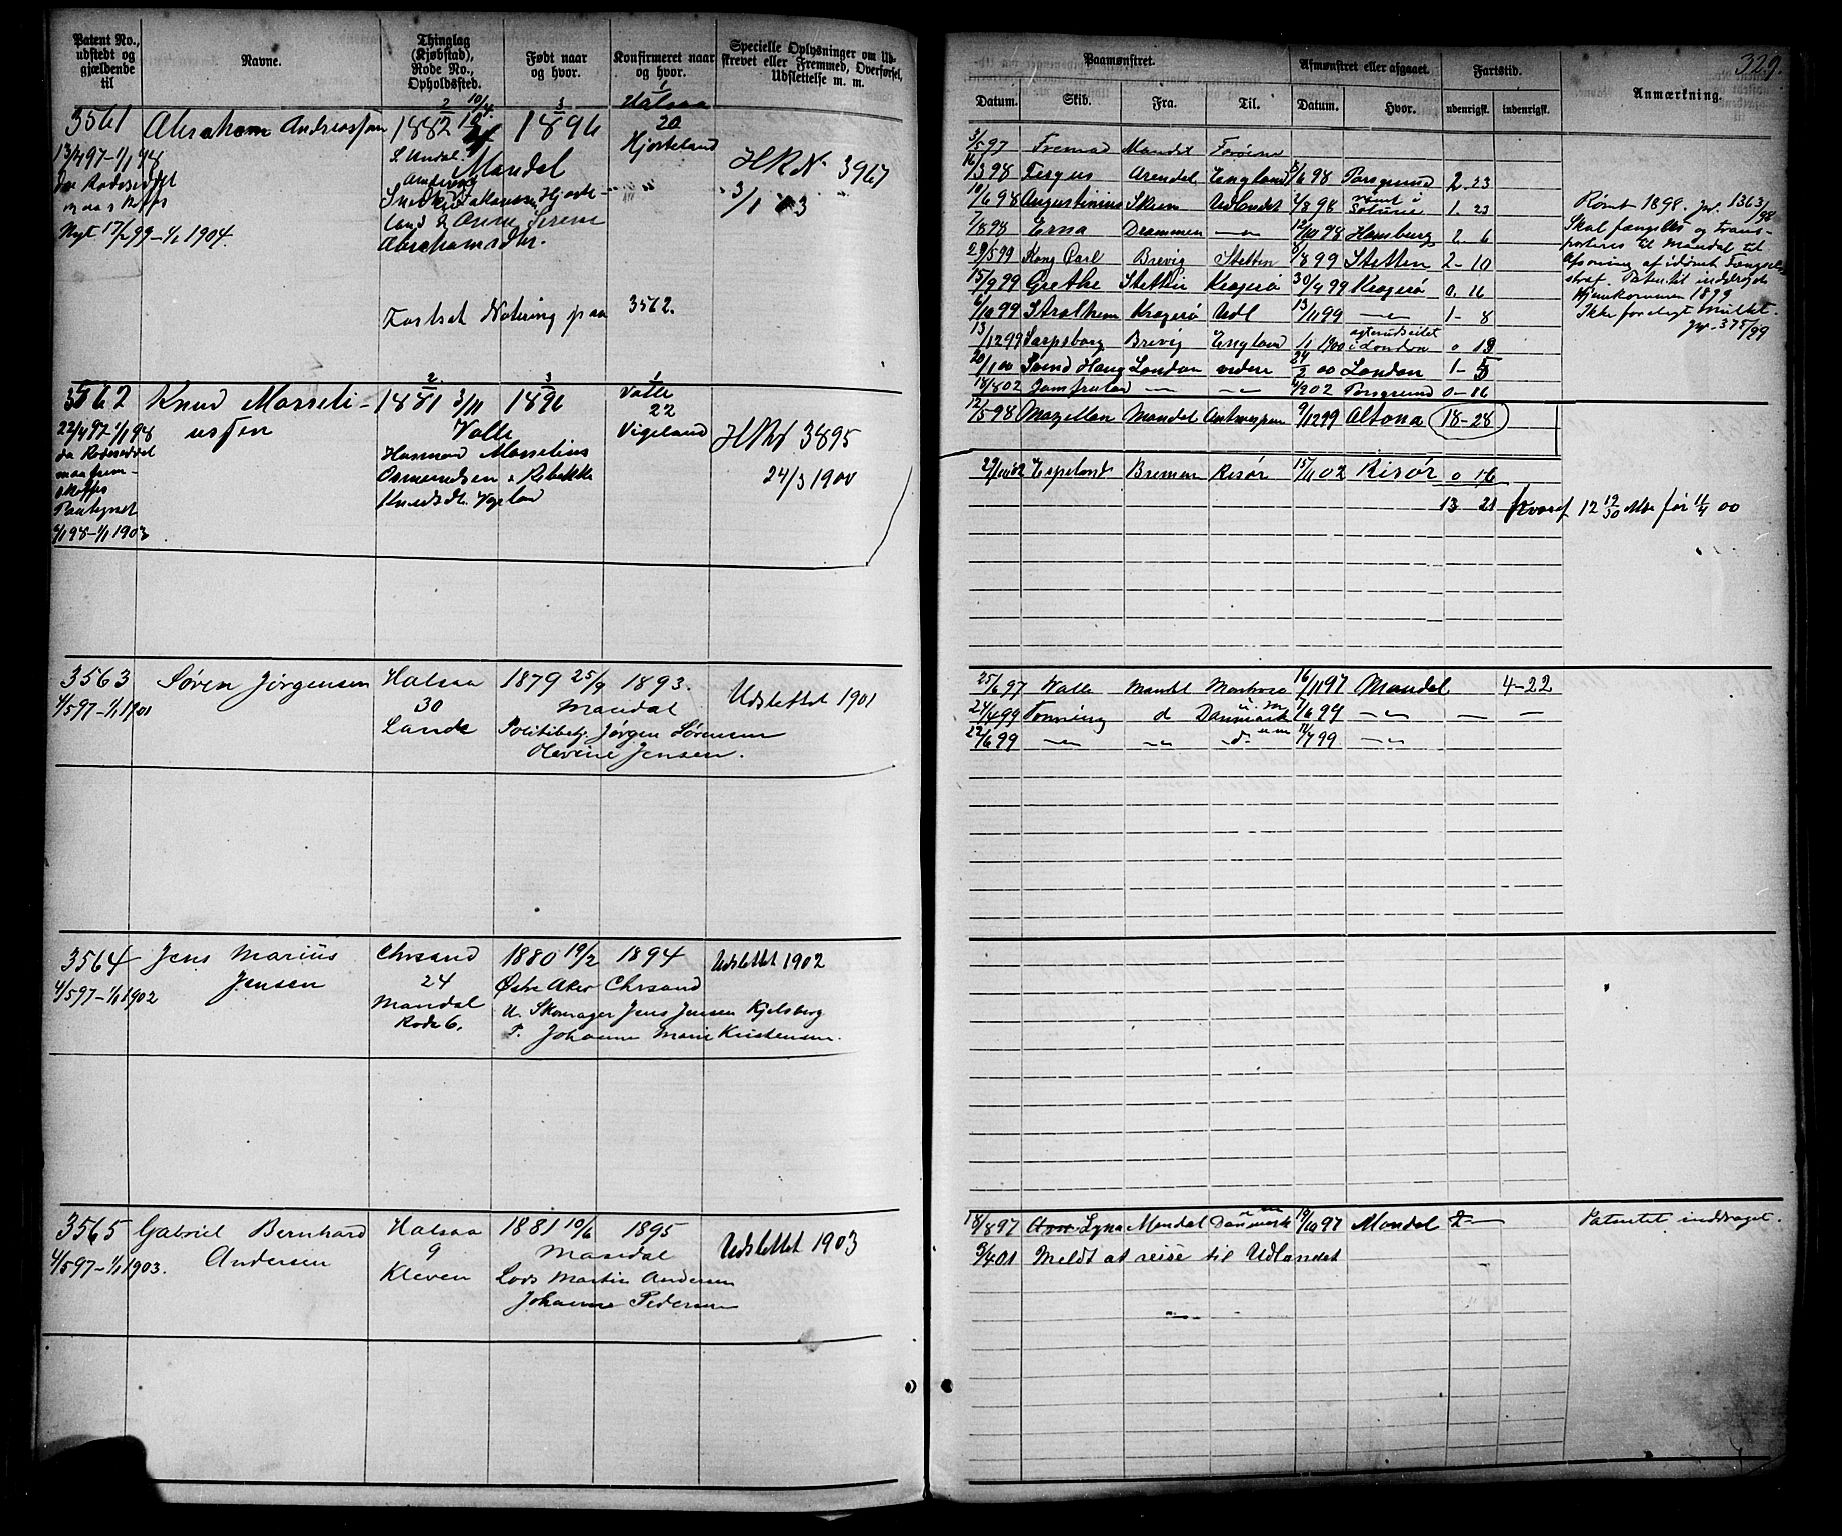 Patent No., udstedt og gjældende til
Navne.
Thinglag (Kjøbstad), Rode No., Opholdssted.
Født naar og hvor.
Konfirmeret naar og hvor.
Specielle Oplysninger om Udskrevet eller Fremmed, Overførsel, Udslettelse m. m.
3561 Abraham Andreassen 1882 10/4 1896 Halsaa
20
Hjorteland
13/4 97 - 1/1 98
Nyt 17/2 99 - 1/1 1904.
S. Undal. Mandal
land & Anne Serine
Abrahamsdtr.
H R N 3967
3/1 03
Fortsat Notering paa 3562.
3562 Knud Masseliussen 1881 3/11 1896 Valle
22
Vigeland
22/4 97 - 1/1 98
da Rodeseddel
maa frem-
skaffes
6/1 98 - 1/1 1903
Valle
Husmand Masselius
Osmundsen & Rebekka
Knudsdtr. Vigeland
H R N 3895
24/3 1900
3563 Søren Jørgensen Halsaa 1879 25/9 1893. Udslettet 1901
4/5 97 - 1/1 1901
30
Lande
Mandal
Politibetj. Jørgen Sørensen
Olevine Jensen.
3564 Jens Marius Jensen Chrsand 1880 19/2 1894 Udslettet 1902
4/5 97 - 1/1 1902
24
Mandal
Rode 6.
Østre Aker Chrsand
U. Skomager Jens Jensen Kjelsberg
P. Johanne Marie Kristensen.
3565 Gabriel Bernhard Andersen Halsaa 1881 10/6 1895 Udslettet 1903
4/5 97 - 1/1 1903.
9
Kleven
Mandal
Lods Martin Andersen
Johanne Pedersen
329.
Paamønstret.
Afmønstret eller afgaaet.
Fartstid.
Anmærkning.
Datum. Skib. Fra. Til. Datum. Hvor. udenrigsk. indenrigsk.
3/5 97 Fremad Mandal Færøerne
16/3 98 Fergus Arendal England 5/6 98 Porsgrund 2-23
10/6 98 Augustinius Skien Udlandet 4/8 98 rømt i 1-23
7/8 98 Erna Drammen —"— 12/10 98 Hamburg 2-6
29/5 99 Kong Carl Brevig Stettin 8/8 99 Stettin 2-10
15/9 99 Grethe Stettin Kragerø 30/9 99 Kragerø 0-16
6/10 99 Stralheim Kragerø Udl 13/11 99 —"— 1-8
13/12 99 Sarpsborg Brevig England 1/1 1900 agterudseilet i London 0 13
20/1 00 Svend Haug London videre 24/2 00 London 1-5
18/8 02 Jomfruland —"— —"— 4/9 02 Porsgrund 0-16
Rømt 1898. jvf. 1363/98
Skal fængsles og trans-
porteres til Mandal til
afsoning af idømt Fængsel-
straf. Patentet inddrages
Hjemkommen 1899
Ikke forelagt mulkt.
jvf. 375/99
12/5 98 Magellan Mandal Antwerpen 9/12 99 Altona 18-28
29/10 02 Espeland Bremen Risør 15/11 02 Risør 0 16
13 21 12 19/30 Mdr før 11/4 00
25/6 97 Valle Mandal 16/11 97 Mandal 4-22
24/4 99 Tønning d Danmark 1/6 99 —"— — —
22/6 99 —"— —"— d- 11/7 99 —"—
18/8 97 Lyna Mandal Danmark 19/10 97 Mandal Patentet inddraget.
3/4 01 Meldt at reise til Udlandet